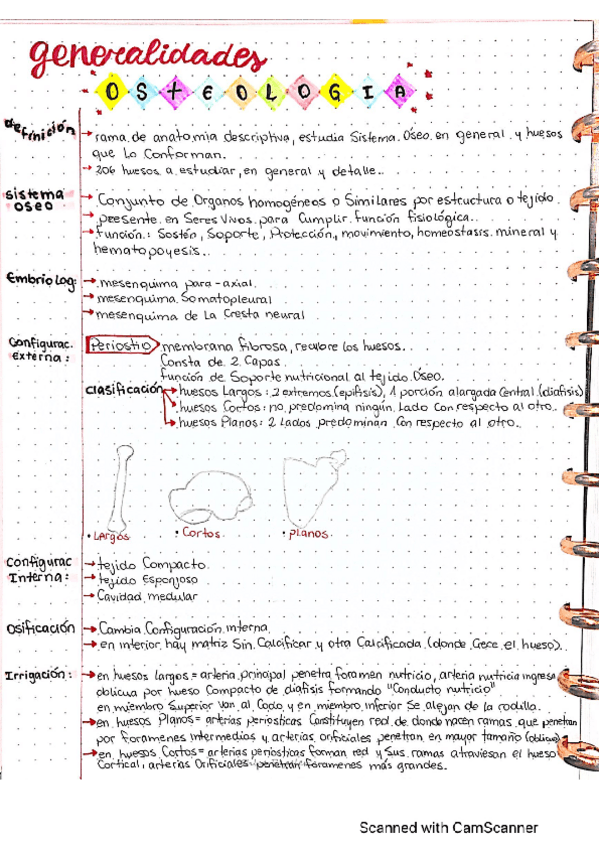 generalidades
OSTEOLOGIA
definición
→ rama de anatomia descriptiva, estudia Sistema Óseo en general y huesos
que lo Conforman.
→ 206 huesos a estudiar, en general y detalle..
sistema
oseo
→ Conjunto de Organos homogéneos o Similares por estructura o tejido.
→ presente en Seres Vivos para Cumplir función fisiológica..
→ función: Sostén, Soporte, Protección, movimiento, homeostasis mineral y
hematopoyesis..
Embriolog:
→ mesenquima para-axial.
→ mesenquima Somatopleural
→ mesenquima de La Cresta neural
Configurac.
externa:
Periostio membrana fibrosa, recubre los huesos.
Consta de 2 Capas
función de Soporte nutricional al tejido Óseo.
clasificación → huesos Largos: 2 extremos (epifisis), 1 porción alargada Central (diafisis)
→ huesos Cortos: no predomina ningún Lado Con respecto al otro..
→ huesos Planos: 2 Lados predominan Con respecto al otro..
• Largos
• Cortos
• planos
Configurac
Interna:
→ tejido Compacto
→ tejido Esponjoso
→ Cavidad medular
Osificación
→ Cambia Configuración interna
→ en interior hay matriz Sin Calcificar y otra Calcificada (donde Crece el hueso)..
Irrigación:
→ en huesos largos = arteria principal penetra foramen nutricio, arteria nutricia ingresa
oblicua por hueso Compacto de diafisis formando "Conducto nutricio"
en miembro Superior van al Codo y en miembro inferior Se alejan de la rodilla.
→ en huesos Planos = artrias periosticas Constituyen red de donde nacen ramas que penetran
por foramenes intermedios y arterias orificiales penetran en mayor tamaño (oblicuo)
→ en huesos Cortos = arterias periosticas forman red y Sus ramas atraviesan el hueso
Cortical, arterias Orificiales penetran foramenes más grandes.
Scanned with CamScanner